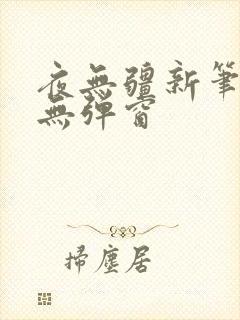 夜無疆新筆
無彈窗
掃塵居